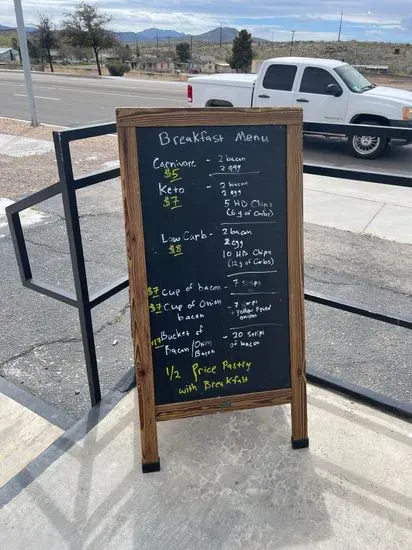 Breakfast Menu
Carnivore - 2 bacon
$5 2 egg
Keto - 2 bacon
$7 2 egg
5 HB Chips
(6g of Carbs)
Low Carb - 2 bacon
$8 2 egg
10 HB Chips
(12g of Carbs)
$7 Cup of bacon - 7 strips
$7 Cup of Onion - 7
bacon
onions
$17 Bucket of - 20 strips
Bacon/Onion of bacon
Bacon
1/2 Price Pastry
with Breakfast